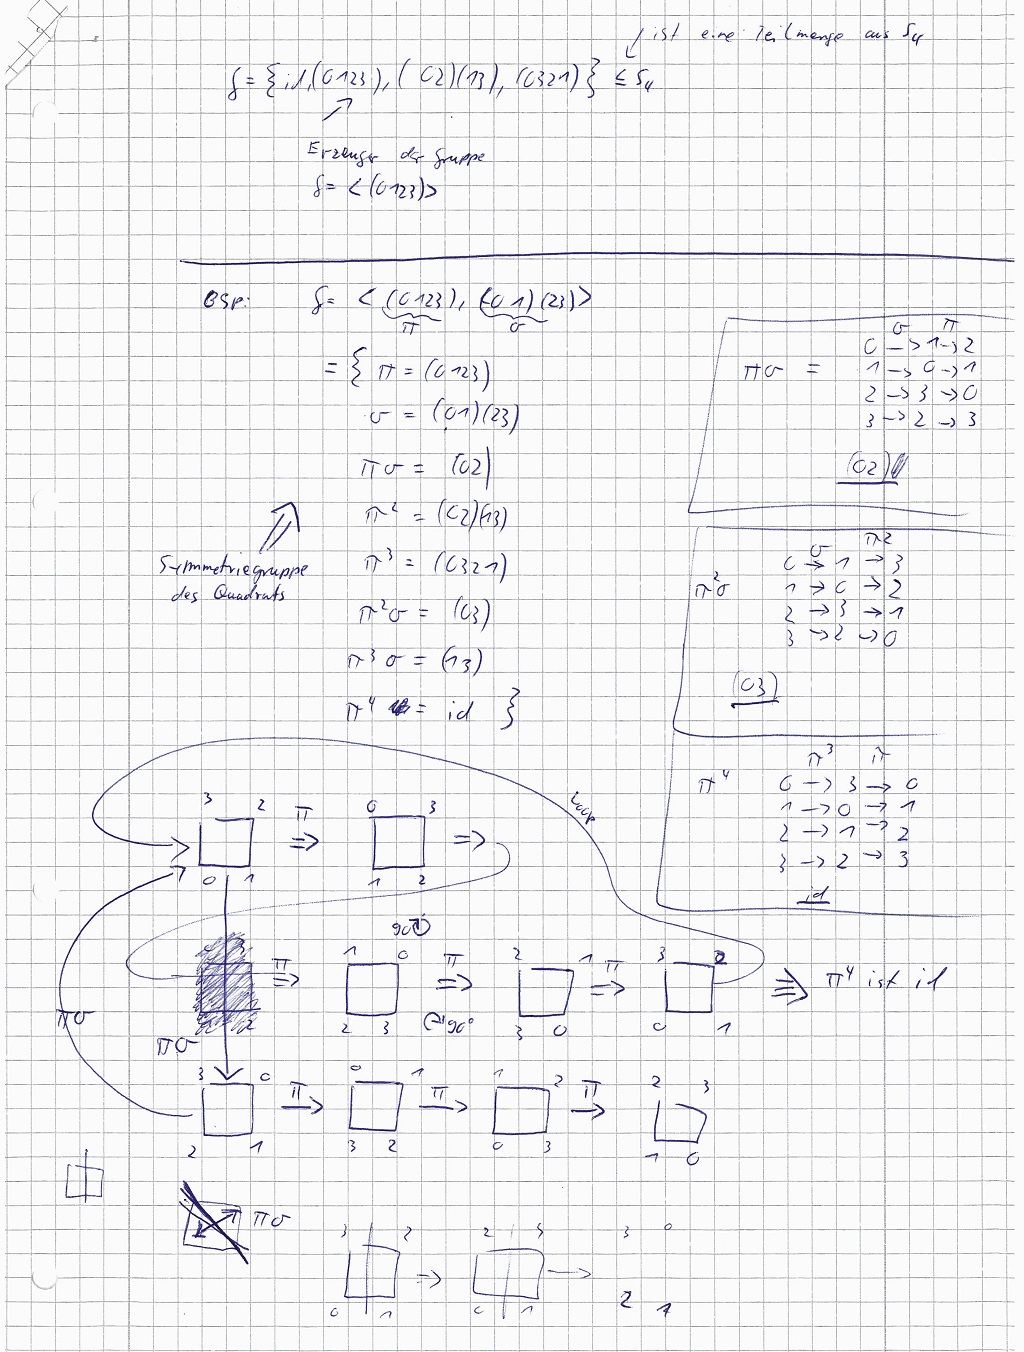 ist eine Teilmenge aus S₄
G = { id, (0123), (02)(13), (0321) } ≤ S₄
Erzeuger der Gruppe
G = <(0123)>
BSP: G = < (0123), (01)(23) >
π σ
= { π = (0123)
σ = (01)(23)
πσ = (02)
π² = (02)(13)
π³ = (0321)
π²σ = (03)
π³σ = (13)
π⁴ = id }
Symmetriegruppe
des Quadrats
σ π
0 -> 1 -> 2
πσ = 1 -> 0 -> 1
2 -> 3 -> 0
3 -> 2 -> 3
(02)
σ π2
0 -> 1 -> 3
π²σ 1 -> 0 -> 2
2 -> 3 -> 1
3 -> 2 -> 0
(03)
π³ π
π⁴ 0 -> 3 -> 0
1 -> 0 -> 1
2 -> 1 -> 2
3 -> 2 -> 3
id
Loop
3 2 π 0 3
=> =>
0 1 1 2
90°
π 1 0 π 2 1 π 3 2
=> => => => π⁴ ist id
2 3 90° 3 0 0 1
πσ
πσ
3 0 π 0 1 π 1 2 π 2 3
2 1 3 2 0 3 1 0
πσ
3 2 2 3 3 0
=> ->
0 1 0 1 2 1